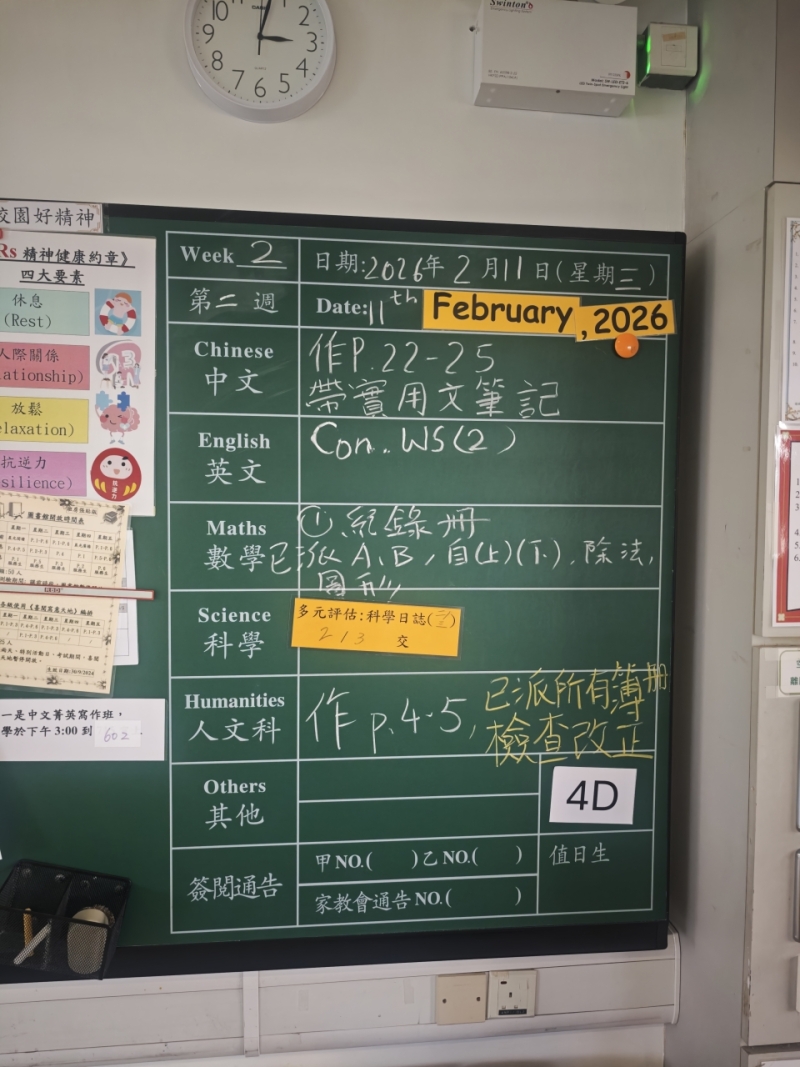 10 2 9 3 8 4 7 6 5
Swinton
校園好精神
Rs 精神健康約章》
四大要素
休息
(Rest)
人際關係
ationship)
放鬆
elaxation)
抗逆力
silience)
抗逆力
圖書館開放時間表
星期一 星期二 星期三 星期四 星期五
一是中文菁英寫作班，
學於下午 3:00 到 602
Week 2
日期:2026年 2 月 11 日 (星期三)
第二週
Date: 11th February, 2026
Chinese
中文
作P.22-25
帶實用文筆記
English
英文
Con. WS(2)
Maths
數學
① 紀錄冊
已派 A、B，自(上)(下)、除法，
圖形
Science
科學
多元評估:科學日誌(二)
2 1 3 交
Humanities
人文科
作 p.4-5,
已派所有簿冊
檢查改正
Others
其他
4D
簽閱通告
甲NO.( )乙NO.( )
家教會通告NO.( )
值日生